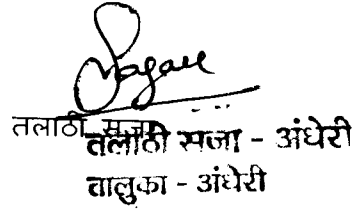 तलाठी सजा
तलाठी सजा - अंधेरी
तालुका - अंधेरी